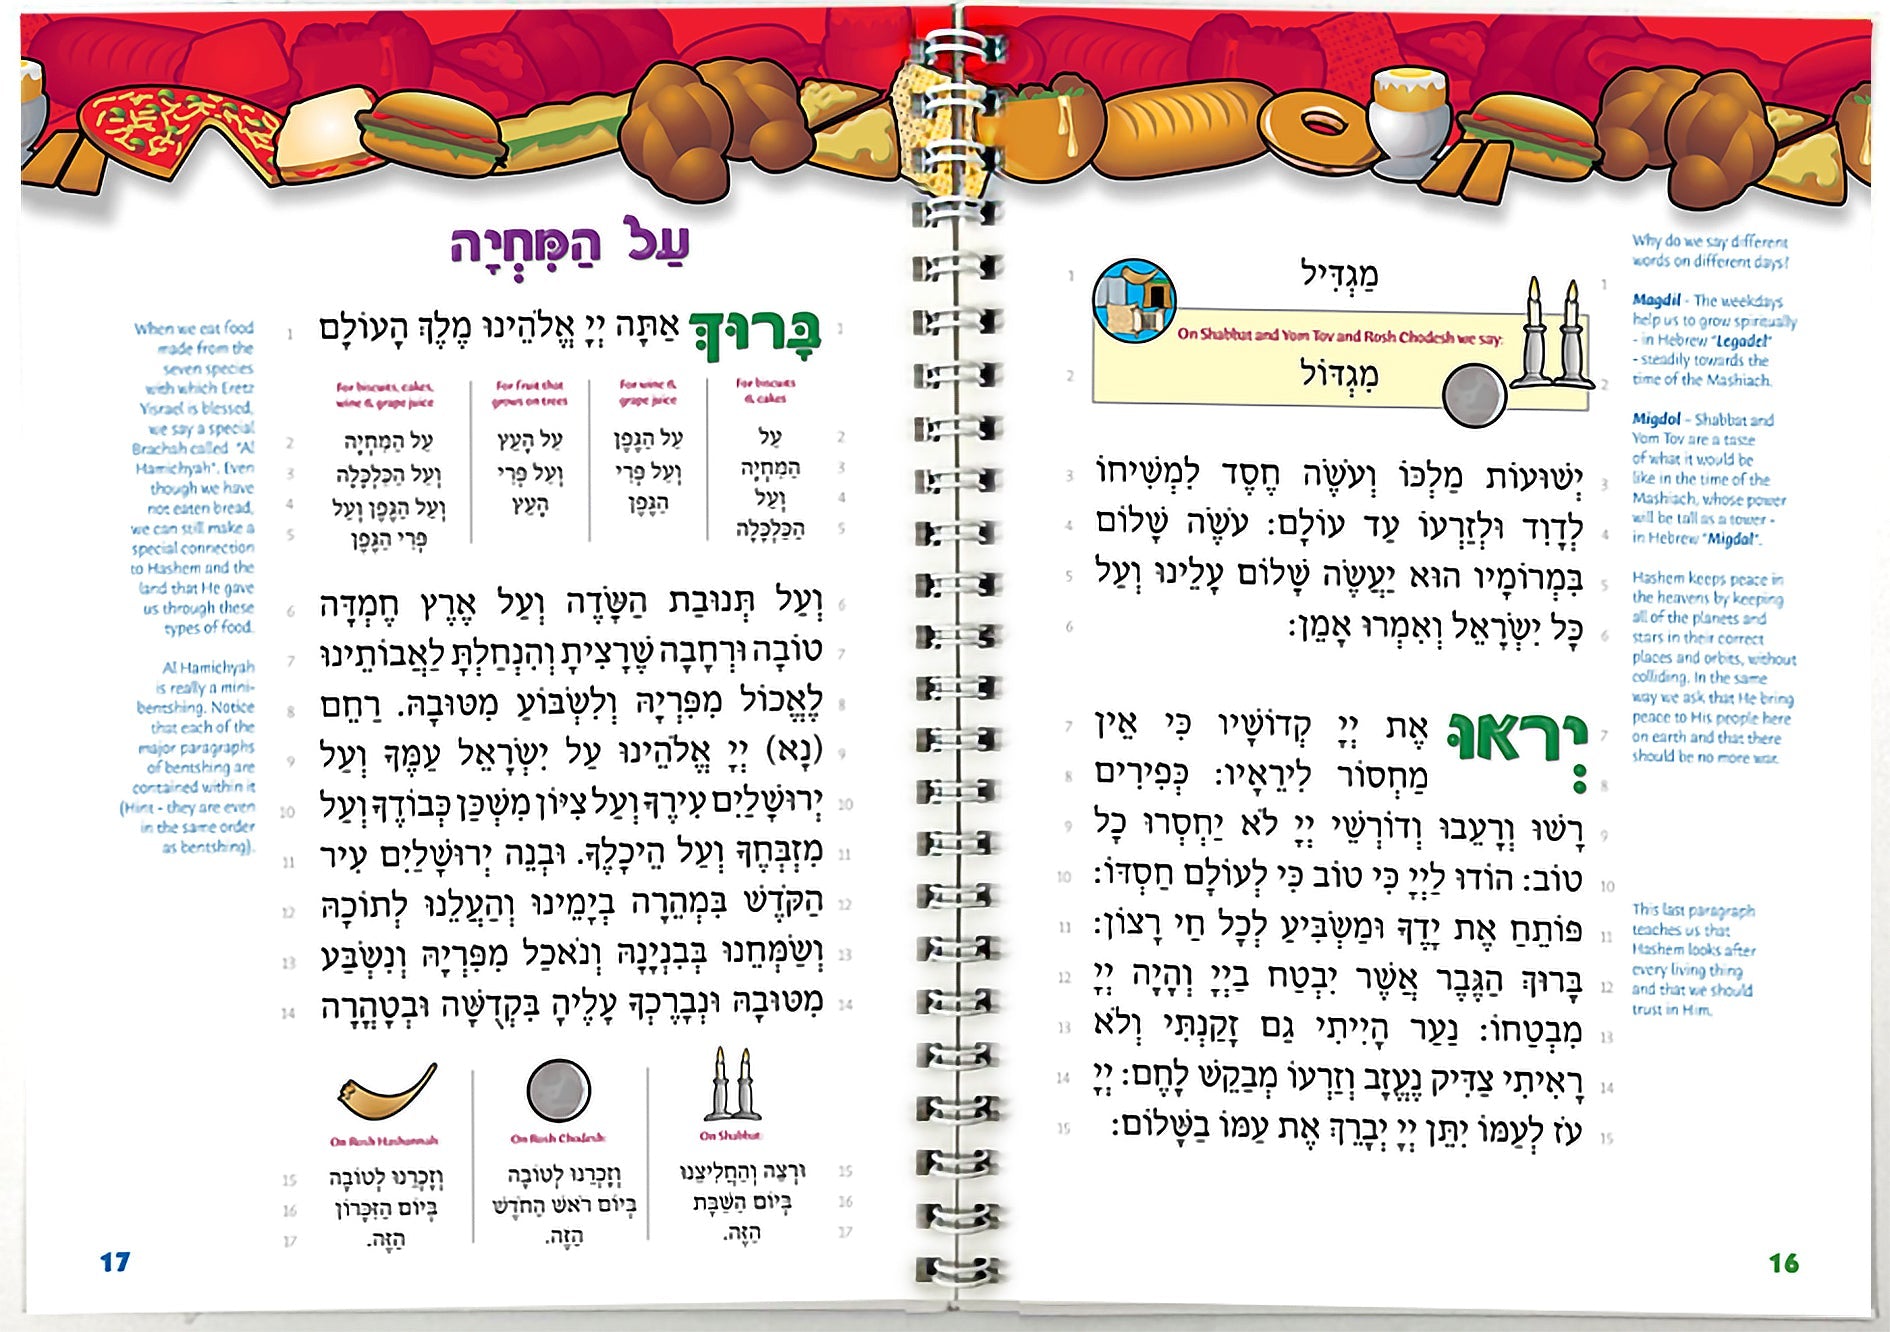 מַגְדִּיל
On Shabbat and Yom Tov and Rosh Chodesh we say:
מִגְדּוֹל
1
2
1
2
יְשׁוּעוֹת מַלְכּוֹ וְעֹשֶׂה חֶסֶד לִמְשִׁיחוֹ
לְדָוִד וּלְזַרְעוֹ עַד עוֹלָם: עֹשֶׂה שָׁלוֹם
בִּמְרוֹמָיו הוּא יַעֲשֶׂה שָׁלוֹם עָלֵינוּ וְעַל
כָּל יִשְׂרָאֵל וְאִמְרוּ אָמֵן:
3
4
5
6
3
4
5
6
יְראוּ אֶת יְיָ קְדוֹשָׁיו כִּי אֵין
מַחְסוֹר לִירֵאָיו: כְּפִירִים
רָשׁוּ וְרָעֵבוּ וְדוֹרְשֵׁי יְיָ לֹא יַחְסְרוּ כָל
טוֹב: הוֹדוּ לַיְיָ כִּי טוֹב כִּי לְעוֹלָם חַסְדּוֹ:
פּוֹתֵחַ אֶת יָדֶךָ וּמַשְׂבִּיעַ לְכָל חַי רָצוֹן:
בָּרוּךְ הַגֶּבֶר אֲשֶׁר יִבְטַח בַּיְיָ וְהָיָה יְיָ
מִבְטַחוֹ: נַעַר הָיִיתִי גַם זָקַנְתִּי וְלֹא
רָאִיתִי צַדִּיק נֶעֱזָב וְזַרְעוֹ מְבַקֵּשׁ לָחֶם: יְיָ
עֹז לְעַמּוֹ יִתֵּן יְיָ יְבָרֵךְ אֶת עַמּוֹ בַשָּׁלוֹם:
7
8
9
10
11
12
13
14
15
7
8
9
10
11
12
13
14
15
Why do we say different
words on different days?
Magdil - The weekdays
help us to grow spiritually
- in Hebrew "Legadel"
- steadily towards the
time of the Mashiach.
Migdol - Shabbat and
Yom Tov are a taste
of what it would be
like in the time of the
Mashiach, whose power
will be tall as a tower -
in Hebrew "Migdal".
Hashem keeps peace in
the heavens by keeping
all of the planets and
stars in their correct
places and orbits, without
colliding. In the same
way we ask that He bring
peace to His people here
on earth and that there
should be no more war.
This last paragraph
teaches us that
Hashem looks after
every living thing
and that we should
trust in Him.
16
עַל הַמִּחְיָה
בָּרוּךְ אַתָּה יְיָ אֱלֹהֵינוּ מֶלֶךְ הָעוֹלָם
1
1
For biscuits
& cakes
עַל
הַמִּחְיָה
וְעַל
הַכַּלְכָּלָה
For wine &
grape juice
עַל הַגֶּפֶן
וְעַל פְּרִי
הַגֶּפֶן
For fruit that
grows on trees
עַל הָעֵץ
וְעַל פְּרִי
הָעֵץ
For biscuits, cakes,
wine & grape juice
עַל הַמִּחְיָה
וְעַל הַכַּלְכָּלָה
וְעַל הַגֶּפֶן וְעַל
פְּרִי הַגֶּפֶן
2
3
4
5
2
3
4
5
וְעַל תְּנוּבַת הַשָּׂדֶה וְעַל אֶרֶץ חֶמְדָּה
טוֹבָה וּרְחָבָה שֶׁרָצִיתָ וְהִנְחַלְתָּ לַאֲבוֹתֵינוּ
לֶאֱכוֹל מִפִּרְיָהּ וְלִשְׂבּוֹעַ מִטּוּבָהּ. רַחֵם
(נָא) יְיָ אֱלֹהֵינוּ עַל יִשְׂרָאֵל עַמֶּךָ וְעַל
יְרוּשָׁלַיִם עִירֶךָ וְעַל צִיּוֹן מִשְׁכַּן כְּבוֹדֶךָ וְעַל
מִזְבְּחֶךָ וְעַל הֵיכָלֶךָ. וּבְנֵה יְרוּשָׁלַיִם עִיר
הַקֹּדֶשׁ בִּמְהֵרָה בְיָמֵינוּ וְהַעֲלֵנוּ לְתוֹכָהּ
וְשַׂמְּחֵנוּ בְּבִנְיָנָהּ וְנֹאכַל מִפִּרְיָהּ וְנִשְׂבַּע
מִטּוּבָהּ וּנְבָרֶכְךָ עָלֶיהָ בִּקְדֻשָּׁה וּבְטָהֳרָה
6
7
8
9
10
11
12
13
14
6
7
8
9
10
11
12
13
14
On Shabbat:
וּרְצֵה וְהַחֲלִיצֵנוּ
בְּיוֹם הַשַּׁבָּת
הַזֶּה.
On Rosh Chodesh:
וְזָכְרֵנוּ לְטוֹבָה
בְּיוֹם רֹאשׁ הַחֹדֶשׁ
הַזֶּה.
On Rosh Hashannah
וְזָכְרֵנוּ לְטוֹבָה
בְּיוֹם הַזִּכָּרוֹן
הַזֶּה.
15
16
17
15
16
17
When we eat food
made from the
seven species
with which Eretz
Yisrael is blessed,
we say a special
Brachah called "Al
Hamichyah". Even
though we have
not eaten bread,
we can still make a
special connection
to Hashem and the
land that He gave
us through these
types of food.
Al Hamichyah
is really a mini-
bentshing. Notice
that each of the
major paragraphs
of bentshing are
contained within it
(Hint - they are even
in the same order
as bentshing).
17